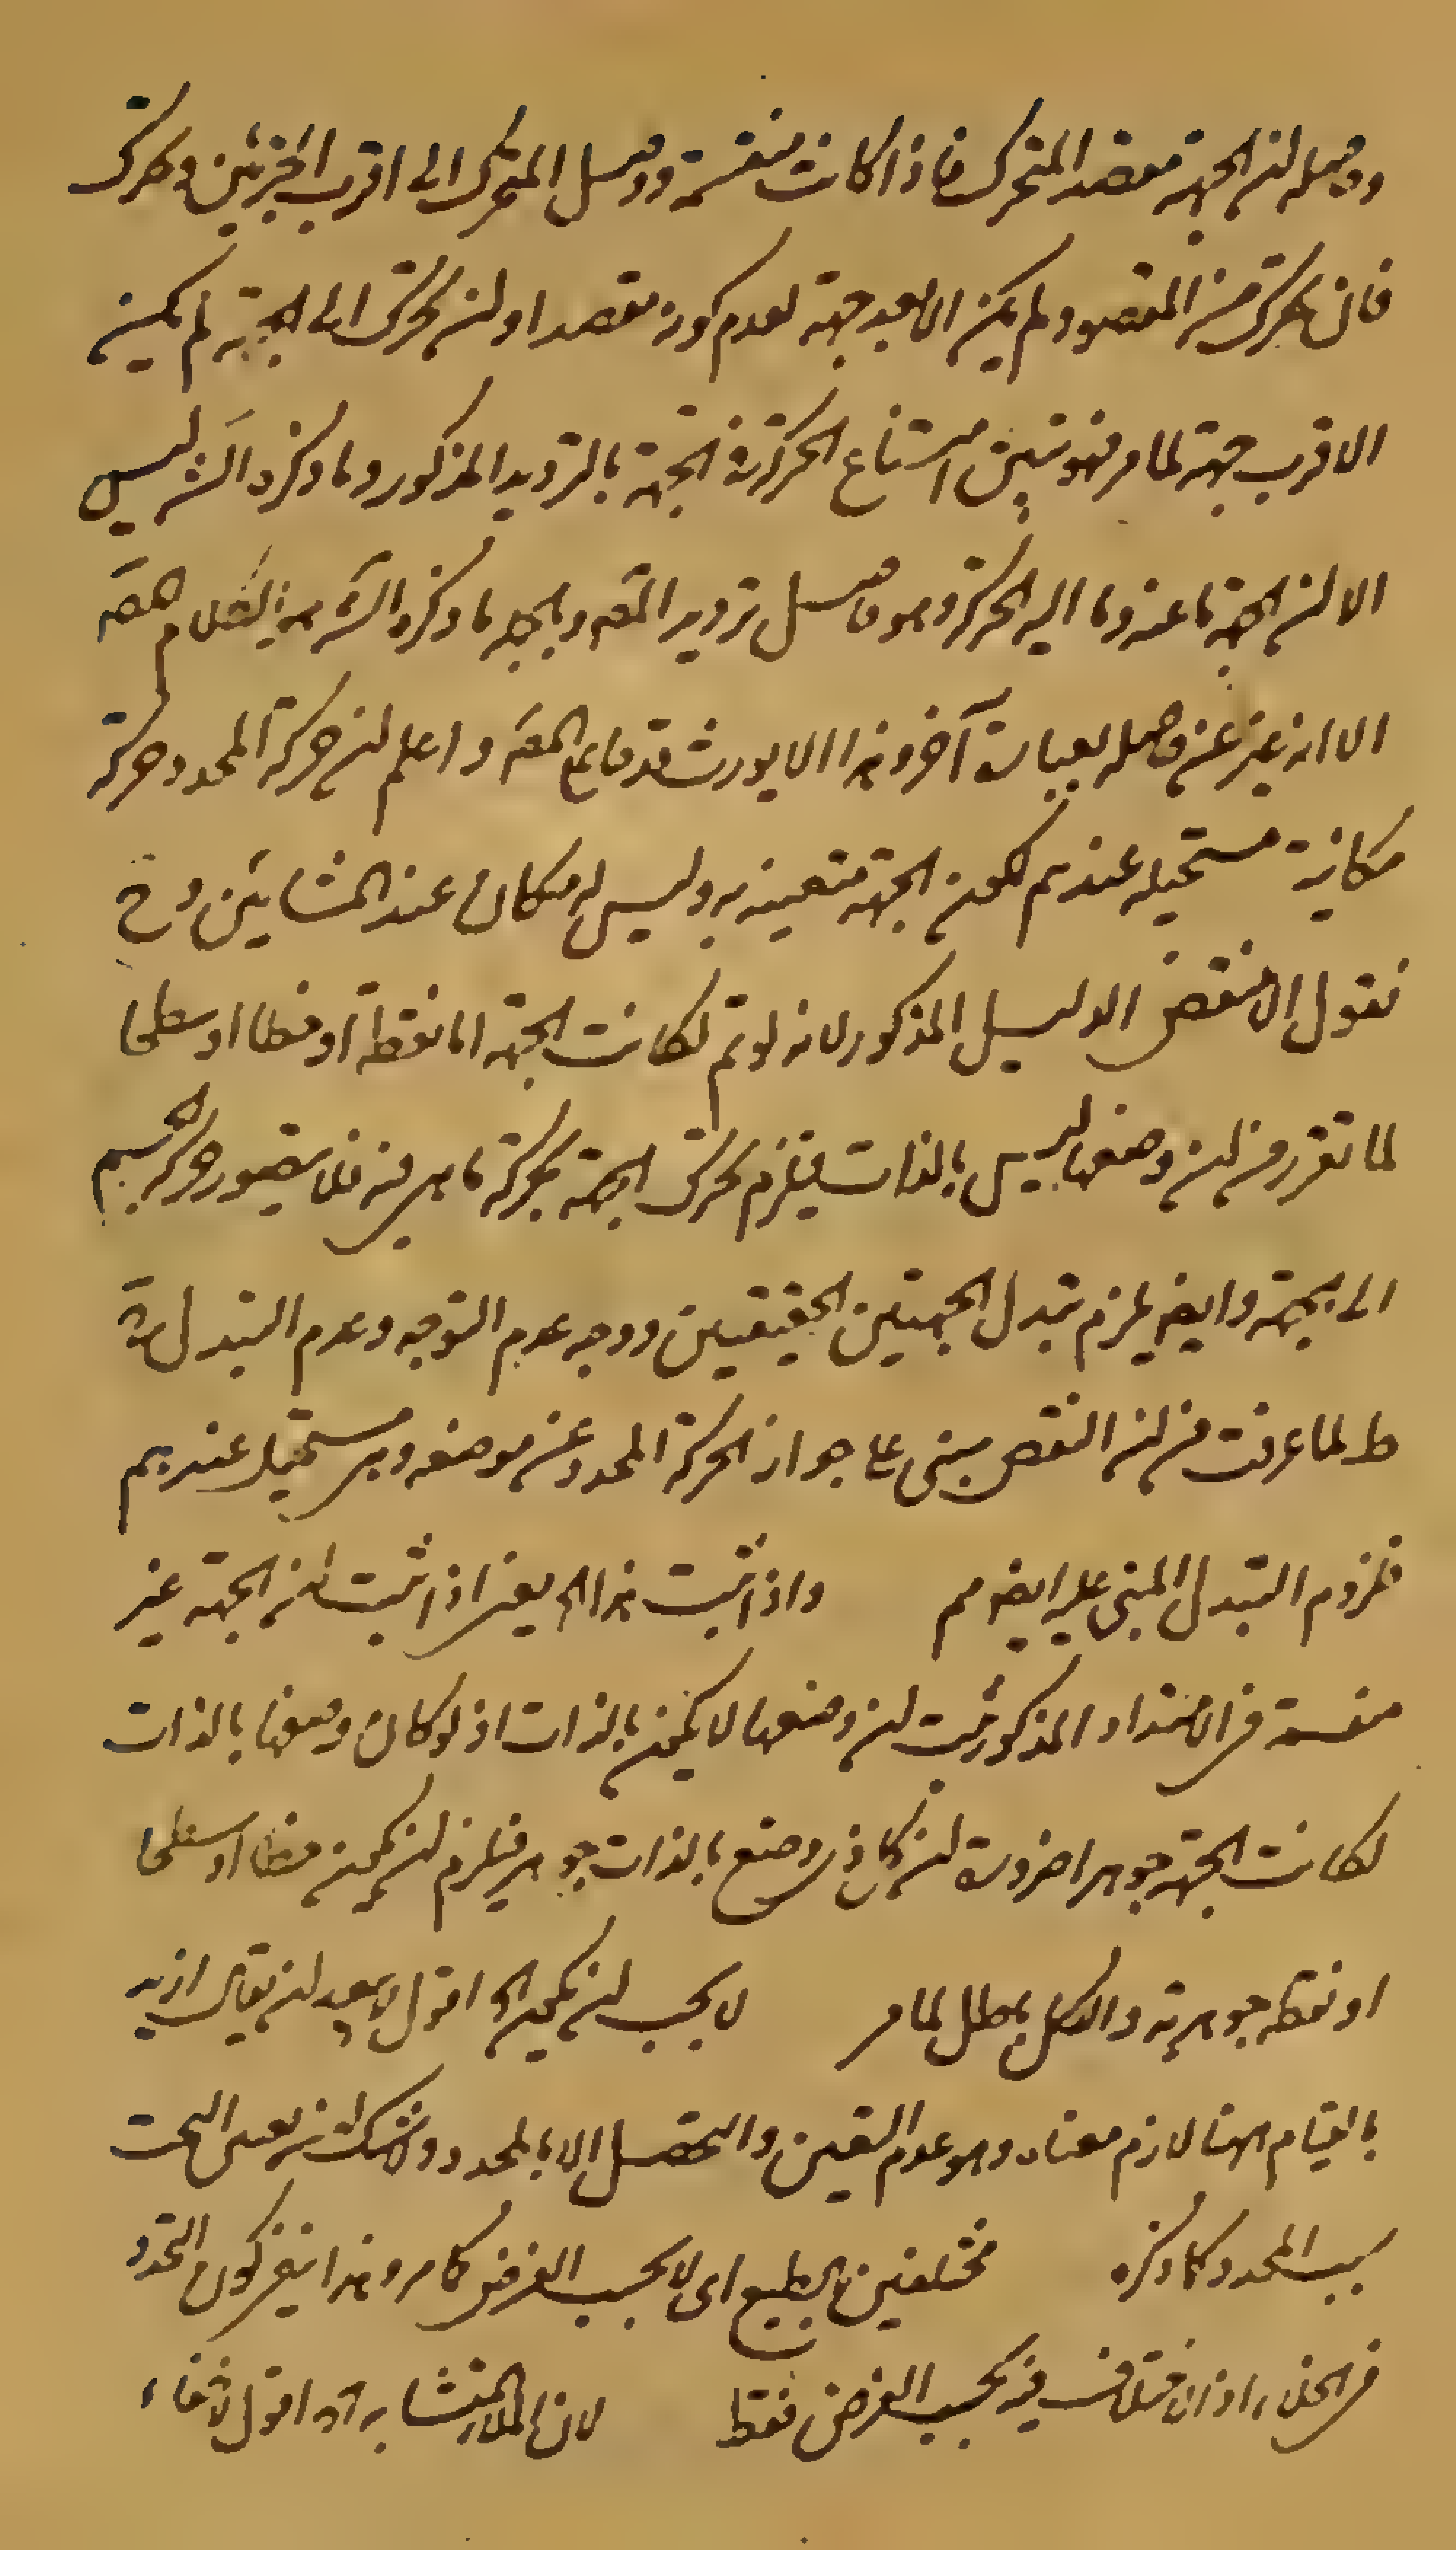 وحاصله ان الجهة مقصد المتحرك فاذا كانت منقسمة ووصل المتحرك الى اقرب الجزئين وتحرك
فان تحرك من المقصود لم يكن الابعد جهة لعدم كونه مقصدا وان تحرك الى الجهة لم يكن
الاقرب جهة لما مر فهو تبين امتناع الحركة في الجهة بالترديد المذكور وما ذكره الشر ليس
الا ان الجهة ما عنه وما اليه الحركة وهو حاصل ترديد المص وبالجملة ما ذكره الشر هو كلام المص
الا انه عبر عن حاصله بعبارة آخر وهذا لا يورث قدحا على المص واعلم ان حركة المحدد حركة
مكانية مستحيلة عندهم لكون الجهة متعينة به وليس له مكان عند المشائين وح
نقول انه منقض الدليل المذكور لانه لو تم لكانت الجهة اما نقطة او خطا او سطحا
لما تقرر من ان وضعها ليس بالذات فيلزم تحرك الجهة بحركة ما هي فيه فلا يتصور حركة الجسم
الى الجهة وايضا يلزم تبدل الجهتين الحقيقيتين ووجه عدم التوجه وعدم التبدل مرة
ط لما عرفت من ان النقض مبنى على جواز الحركة المحدد عن موضعه وهي مستحيلة عندهم
فلزوم التبدل المبنى عليه ايضا مم واذا ثبت هذا الخ يعنى اذا ثبت ان الجهة غير
منقسمة في الامتداد المذكور ثبت ان وضعها لا يكون بالذات اذ لو كان وضعها بالذات
لكانت الجهة جوهرا ضرورة ان كل ذى وضع بالذات جوهر فيلزم ان يكون خطا او سطحا
او نقطة جوهرية والكل باطل لما مر لا يجب ان يكون الخ اقول لا يبعد ان يقال اريد
بالقيام ههنا لازم معناه وهو عدم التعين والتحصل الا بالمحدد ولا شك ان تعين الجهة
بسبب المحدد كما ذكره مختلفين بالطبع اى لا بحسب الفرض كما مر وهذا ينفى كون التحدد
في الخلاء اذ الاختلاف فيه بحسب الفرض فقط لان الملاء المتشابه اه اقول لا خفاء